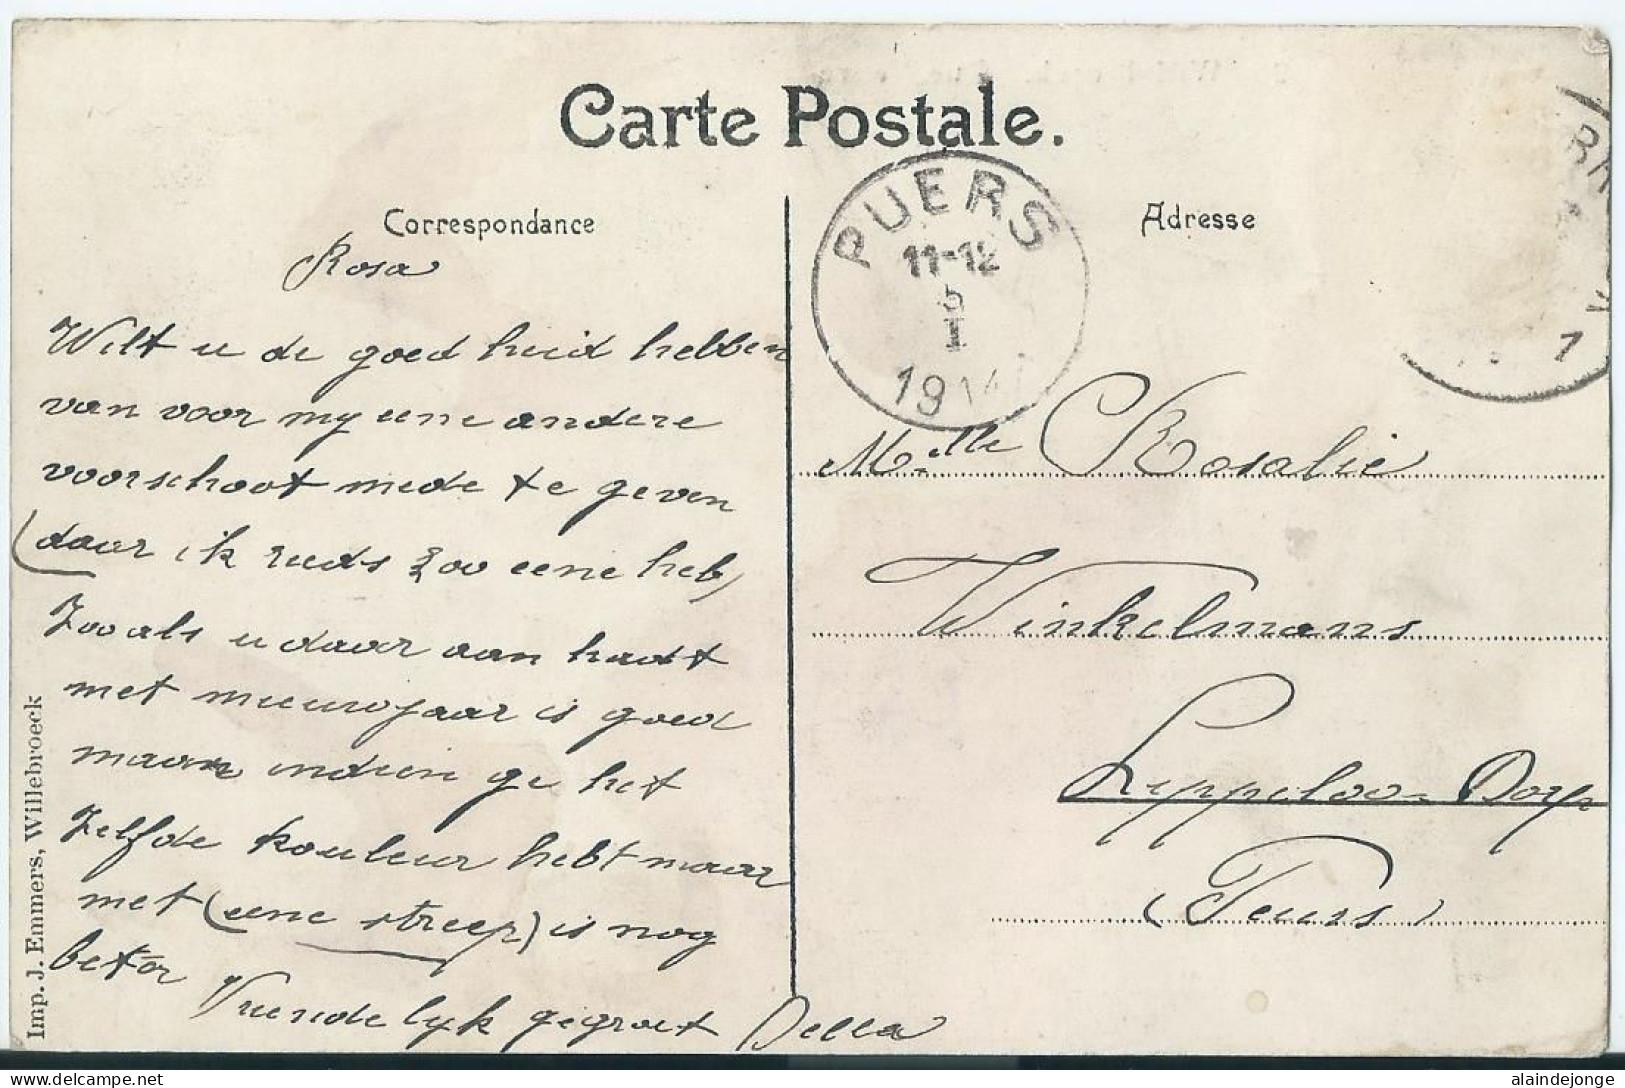 Carte Postale.
Correspondance
Rosa
Wilt u de goed heid hebben
van voor my eene andere
voorschoot mede te geven
(daar ik reeds zoo eene heb)
Zooals u daar aan hadt
met nieuwjaar is goed
maar indien ge het
Zelfde kouleur hebt maar
met (eene streep) is nog
beter
Vriendelyk gegroet Della
Imp. J. Emmers, Willebroeck
PUERS
11-12
5
I
1914
Adresse
Melle Rosalie
Winkelmans
Lippeloo-Dorp
(Peurs)
1
alaindejonge